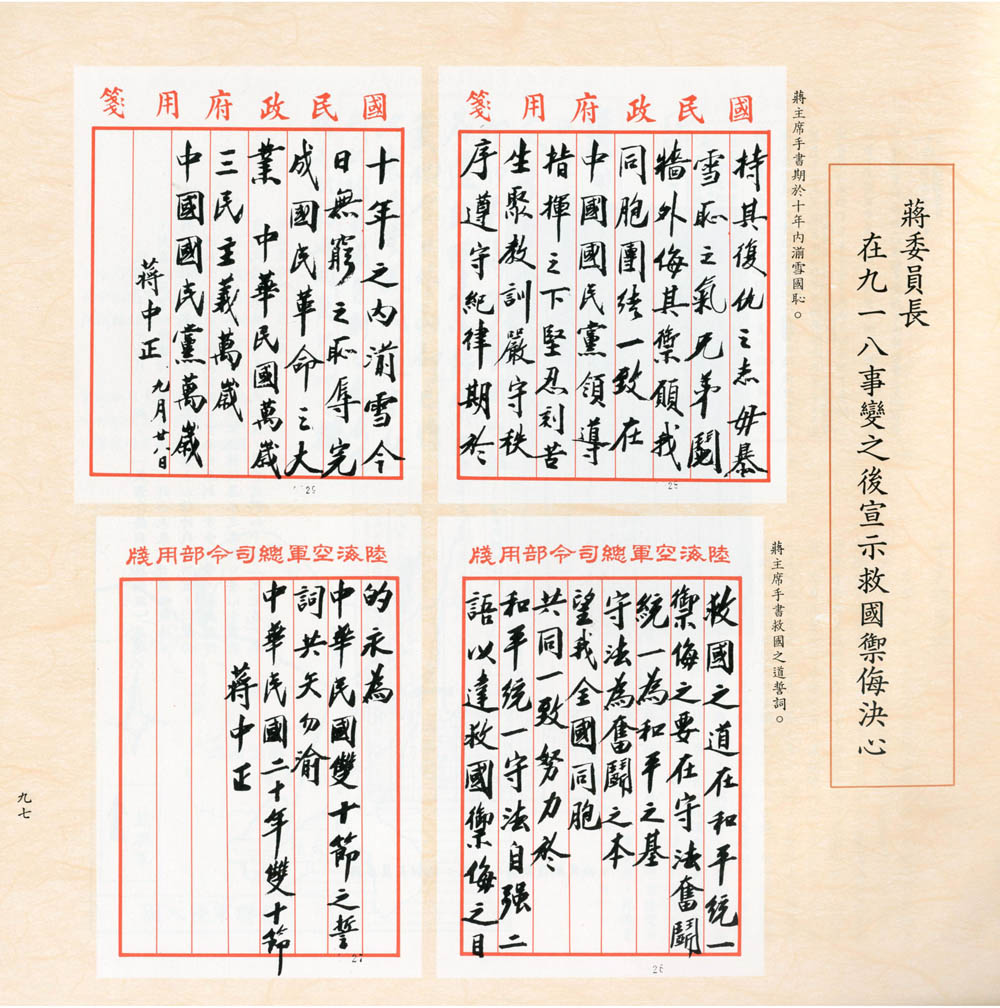 蔣委員長
在九一八事變之後宣示救國禦侮決心
蔣主席手書期於十年內湔雪國恥。
國民政府用箋
持其復仇之志毋暴
雪恥之氣兄弟鬩
牆外侮其禦願我
同胞團結一致在
中國國民黨領導
指揮之下堅忍刻苦
生聚教訓嚴守秩
序遵守紀律期於
25
國民政府用箋
十年之內湔雪今
日無窮之恥辱完
成國民革命之大
業 中華民國萬歲
三民主義萬歲
中國國民黨萬歲
蔣中正 九月廿八日
29
蔣主席手書救國之道誓詞。
陸海空軍總司令部用牋
救國之道在和平統一
禦侮之要在守法奮鬪
統一為和平之基
守法為奮鬪之本
望我全國同胞
共同一致努力於
和平統一守法自强二
語以達救國禦侮之目
26
陸海空軍總司令部用牋
的永為
中華民國雙十節之誓
詞共矢勿渝
中華民國二十年雙十節
蔣中正
27
九七